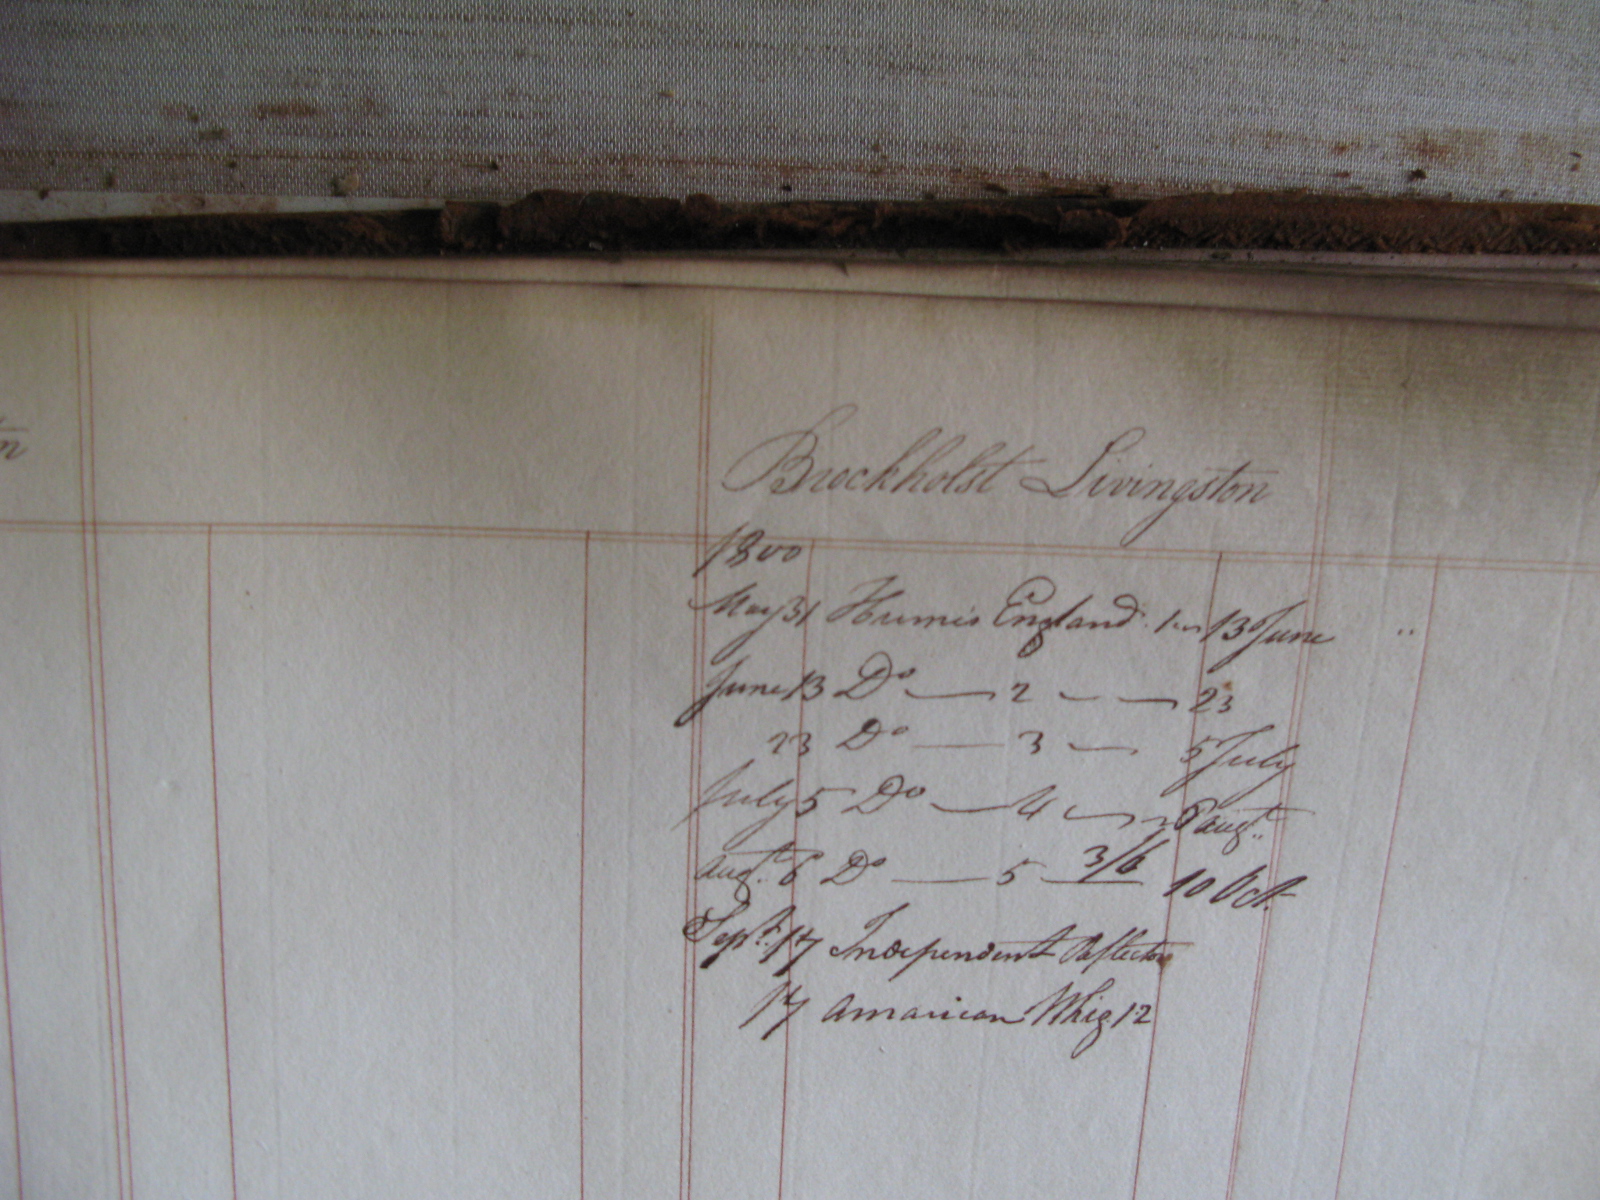 Brockholst Livingston
1800
May 31 Humes England 1 13 June "
June 13 Do — 2 — — 23
23 Do — 3 — 5 July
July 5 Do — 4 — — 6 Augt.
Augt. 6 Do — 5 3/6 10 Oct.
Sept. 17 Independent Reflector
17 American Whig 1.2